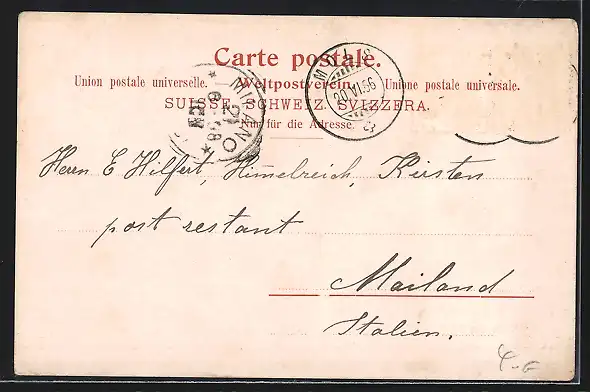 Carte postale.
Union postale universelle. Weltpostverein. Unione postale universale.
SUISSE. SCHWEIZ. SVIZZERA.
Nur für die Adresse.
MILANO
21
6-98
20 VI.
Herrn E Hilfert, Himelreich, Kirsten
post restant
Mailand
Italien.